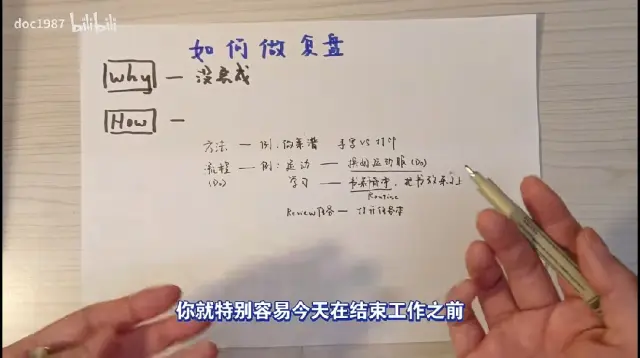 doc1987 bilibili
如何做复盘
Why — 没完成
How —
方法 — 例: 手写 VS 打印
流程 — 例: 运动 — 换好运动服 (Do)
(Do) 学习 — 书桌清空, 把书放桌上
Routine
Review任务 — 打开任务本
你就特别容易今天在结束工作之前